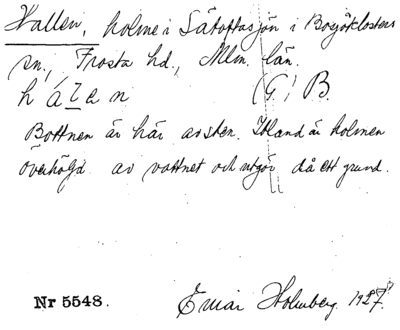 Hallen, holme i Sätoftasjön i Bosjöklosters
sn., Frosta hd., Mlm. län.
h á l e n (G! B.
Bottnen är här av sten. Ibland är holmen
översköljd av vattnet och utgör då ett grund.
Nr 5548. Einar Holmberg. 1927.